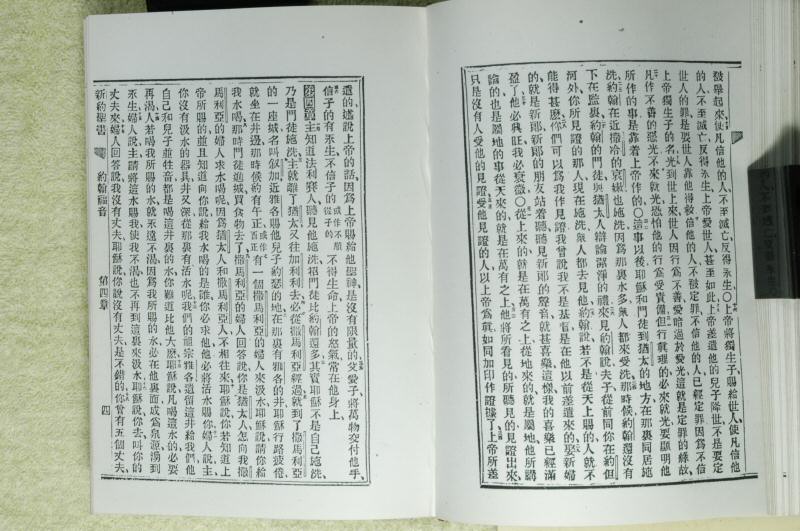 發舉起來使凡信他的人不至滅亡反得永生○上帝將獨生子賜給世人使凡信他
的人不至滅亡反得永生上帝愛世人甚至如此上帝差遣他的兒子降世不是要定
世人的罪是要世人靠他得救信他的人不被定罪不信他的人已經定罪因爲不信
上帝獨生子的名光到世上來世人因行爲不善愛暗過於愛光這就是定罪的緣故
凡作不善的惡光不來就光恐怕他的行爲受責備但行眞理的必來就光要顯明他
所作的事是靠着上帝作的○這事以後耶穌和門徒到猶太的地方在那裏同居施
洗約翰在近撒冷的哀嫩也施洗因爲那裏水多衆人都來受洗那時候約翰還沒有
下在監裏約翰的門徒與猶太人辯論潔淨的禮來見約翰說夫子從前同你在約但
河外你所見證的那人現在施洗衆人都去見他約翰說若不是從天上賜的人就不
能得甚麽你們可以爲我作見證我曾說我不是基督是在他以前差遣來的娶新婦
的就是新郞新郞的朋友站着聽聽見新郞的聲音就甚喜樂這樣我的喜樂已經滿
盈了他必興旺我必衰微○從上來的就是在萬有之上從地來的就是屬地他所講
論的也是屬地的事從天來的就是在萬有之上他將所看見的所聽見的見證出來
只是沒有人受他的見證受他見證的人以上帝爲眞就如同加印作證據了上帝所差
遣的述說上帝的話因爲上帝賜給他聖神是沒有限量的父愛子將萬物交付他手
信子的有永生不信子的或作不順從子的不得生命上帝的怒氣常在他身上
第四章主知道法利賽人聽見他施洗招門徒比約翰還多其實耶穌不是自己施洗
乃是門徒施洗主就離了猶太又往加利利去必從撒馬利亞經過就到了撒馬利亞
的一座城名叫叙加近雅各賜他兒子約瑟的地在那裏有雅各的井耶穌行路疲倦
就坐在井邊那時候約有午正或作酉正有一個撒馬利亞的婦人來汲水耶穌說請你給
我水喝那時門徒進城買食物去了撒馬利亞的婦人回答說你是猶太人怎向我撒
馬利亞的婦人求水喝呢因爲猶太人和撒馬利亞人不相往來耶穌說你若知道上
帝所賜的並且知道向你說給我水喝的是誰你必求他他必將活水賜你婦人說主
你沒有汲水的器具井又深從那裏有活水呢我們的祖宗雅各遺留這井給我們他
自己和兒子並牲音都是喝這井裏的水你難道比他大麽耶穌說凡喝這水的必要
再渴人若喝我所賜的水就永遠不渴因爲我所賜的水必在他裏面成爲泉源湧到
永生婦人說主請將這水賜我使我不渴也不再到這裏來汲水耶穌說你去叫你的
丈夫來婦人回答說我沒有丈夫耶穌說你說沒有丈夫是不錯的你曾有五個丈夫
新約聖書 約翰福音 第四章 四